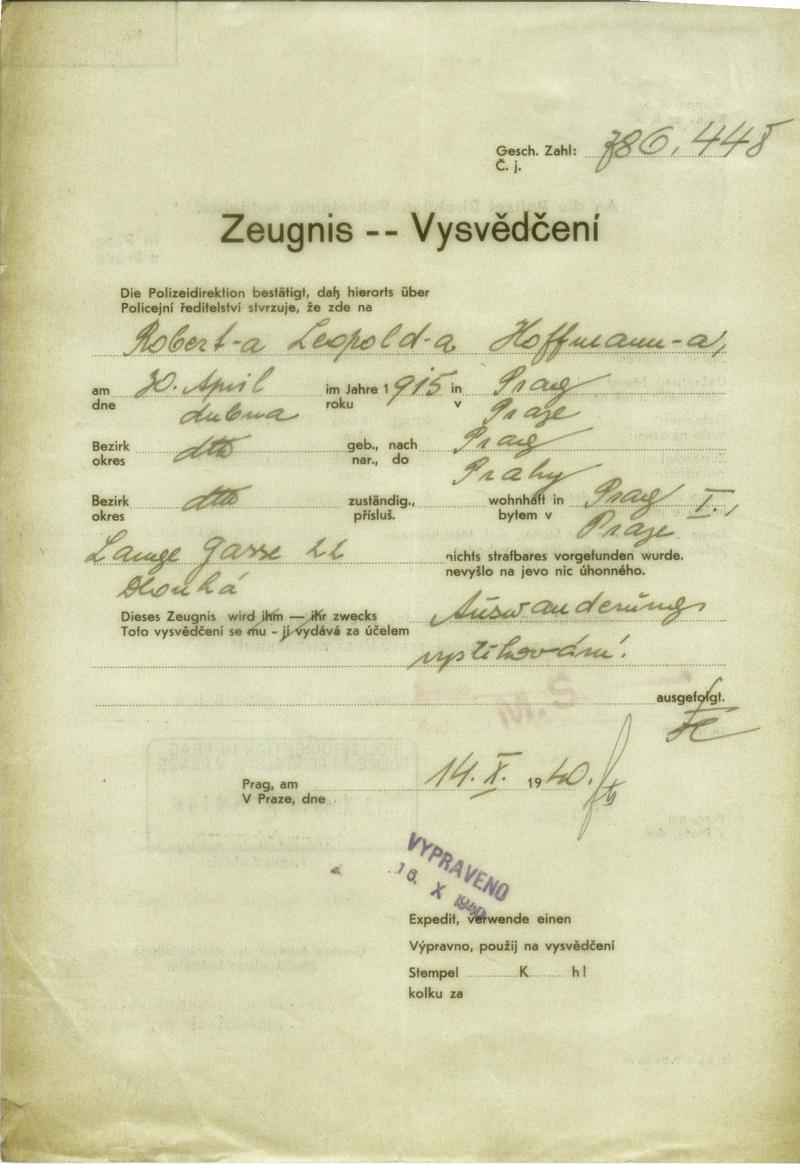 Gesch. Zahl: 786.448
Č. j.
Zeugnis -- Vysvědčení
Die Polizeidirektion bestätigt, daß hierorts über
Policejní ředitelství stvrzuje, že zde na
Robert-a Leopold-a Hoffmann-a,
am 30. April im Jahre 1915 in Prag
dne dubna roku v Praze
Bezirk dtto geb., nach Prag
okres nar., do Prahy
Bezirk dtto zuständig., wohnhaft in Prag I.,
okres přísluš. bytem v Praze
Lange Gasse 22 nichts strafbares vorgefunden wurde.
Dlouhá nevyšlo na jevo nic úhonného.
Dieses Zeugnis wird ihm — ihr zwecks Auswanderung
Toto vysvědčení se mu - jí vydává za účelem
vystěhování.
M. S.
ausgefolgt.
Prag, am 14. X. 1940.
V Praze, dne
VYPRAVENO
16. X 1940
Expedit, verwende einen
Výpravno, použij na vysvědčení
Stempel K h!
kolku za